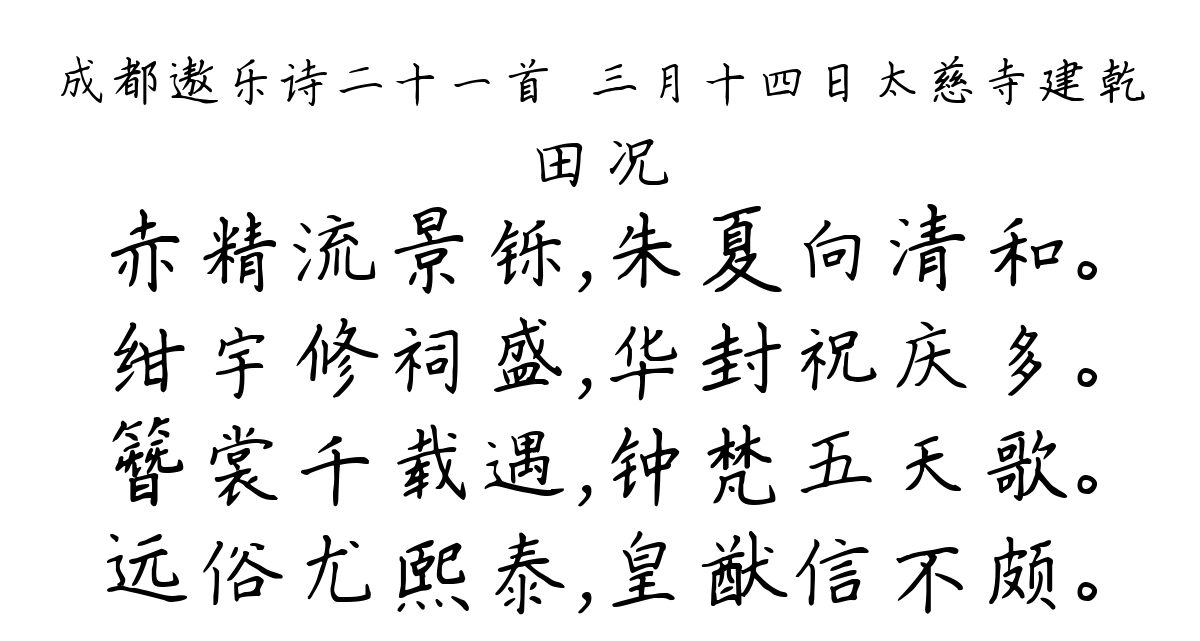 成都遨乐诗二十一首 三月十四日太慈寺建乾
田况
赤精流景铄,朱夏向清和。
绀宇修祠盛,华封祝庆多。
簪裳千载遇,钟梵五天歌。
远俗尤熙泰,皇猷信不颇。